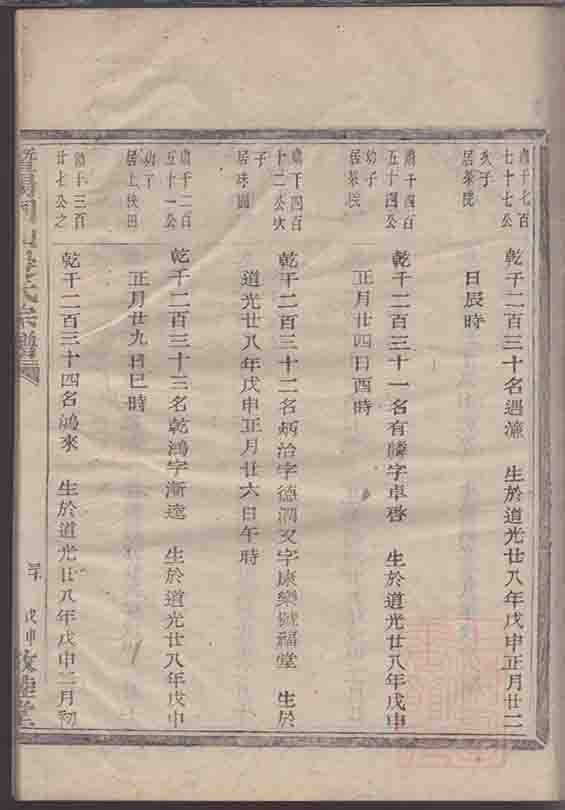 肅千七百
七十七公
次子
居茶院
乾千二百三十名遇濂 生於道光廿八年戊申正月廿二
日辰時
肅千四百
五十四公
幼子
居茶院
乾千二百三十一名有麟字卓啓 生於道光廿八年戊申
正月廿四日酉時
肅千四百
十二公次
子
居球園
乾千二百三十二名炳治字德潤又字康樂號福堂 生於
道光廿八年戊申正月廿六日午時
肅千二百
五十一公
幼子
居上快田
乾千二百三十三名乾鴻字漸逵 生於道光廿八年戊申
正月廿九日巳時
肅千三百
廿七公之
乾千二百三十四名鴻來 生於道光廿八年戊申二月初
暨陽 山 氏宗譜
戊申 敦睦堂